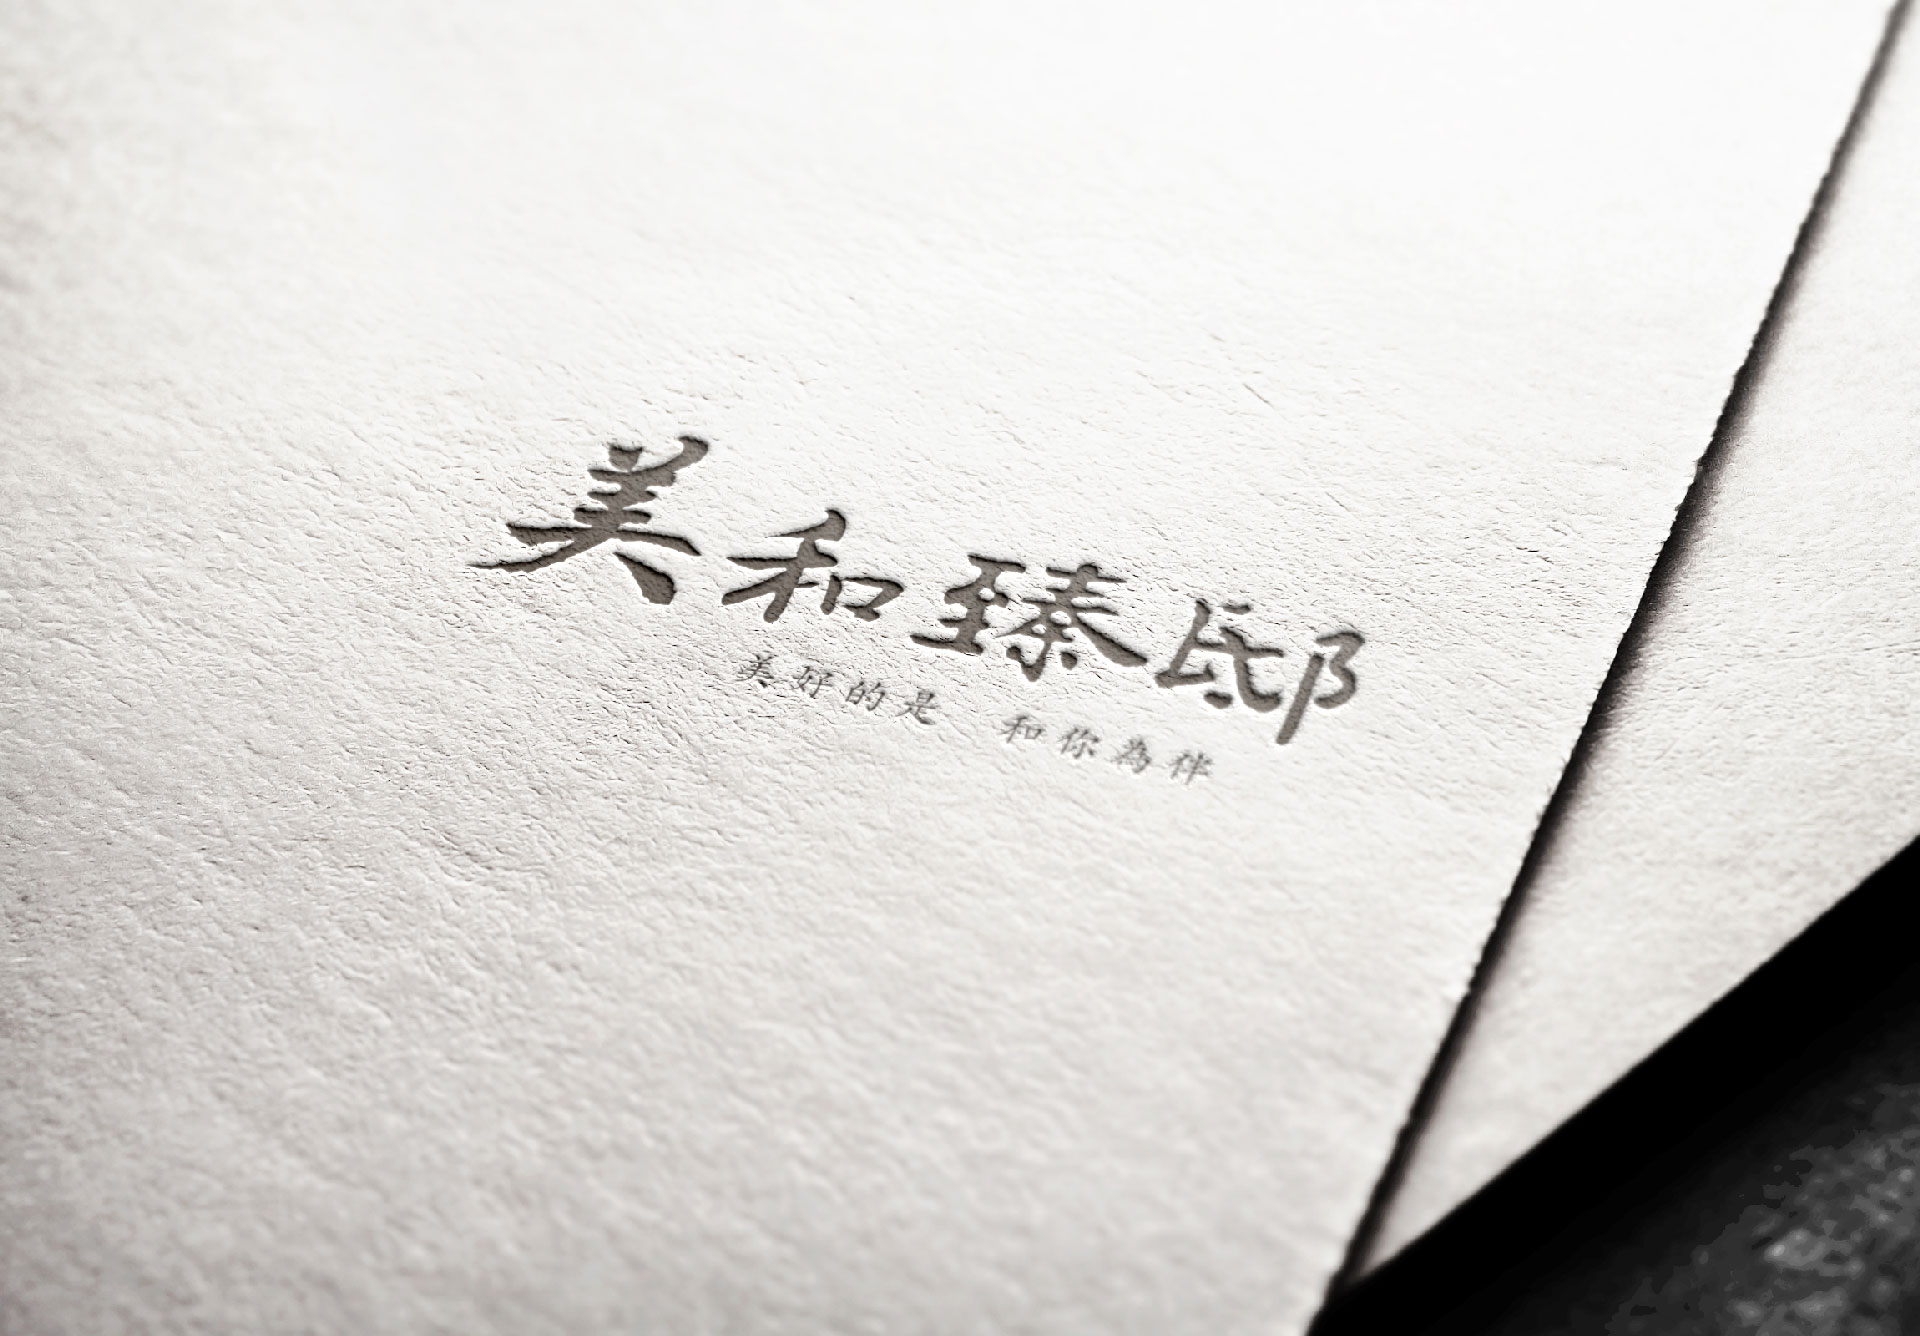 美和臻邸
美好的是 和你為伴